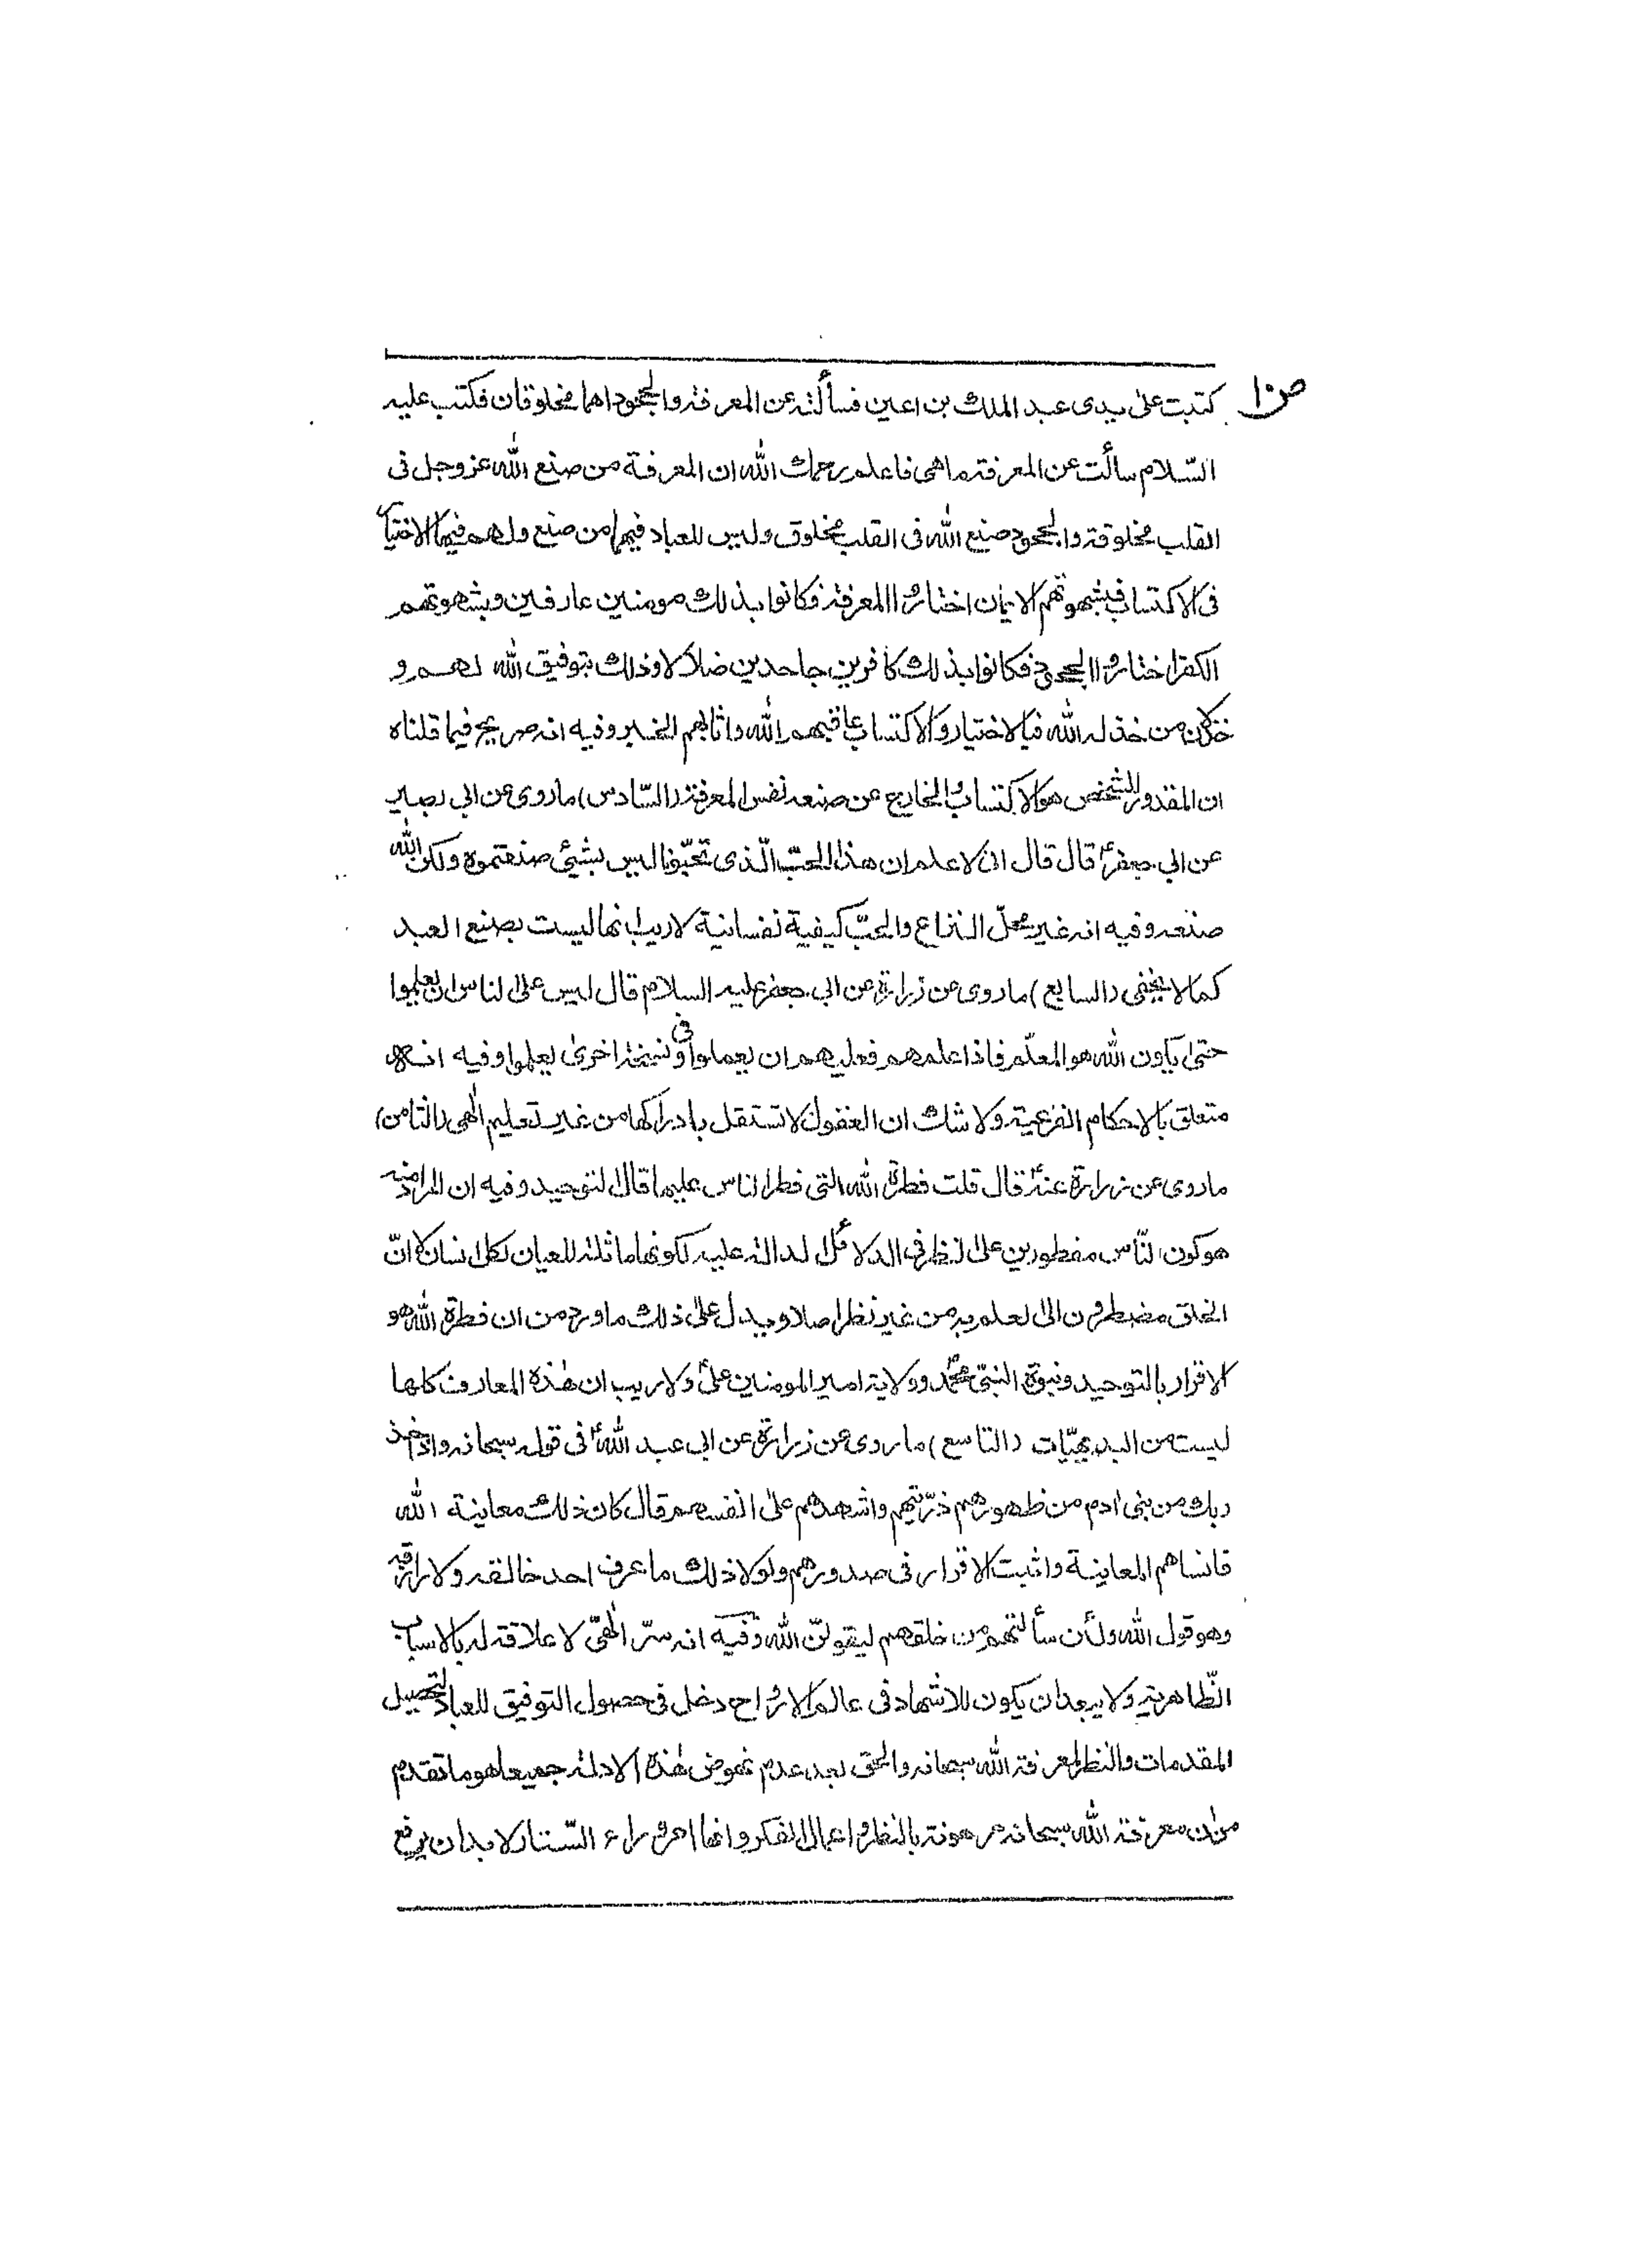 ص١٠
كتبت على يدى عبد الملك بن اعين فسألته عن المعرفة والجحود اهما مخلوقان فكتب عليه
السّلام سألت عن المعرفة ماهى فاعلم رحمك الله ان المعرفة من صنع الله عز وجل فى
القلب مخلوقة والجحود صنع الله فى القلب مخلوق وليس للعباد فيهما من صنع ولهم فيهما الاختيار
فى الاكتساب فبشهوتهم الايمان اختاروا المعرفة فكانوا بذلك مومنين عارفين وبشهوتهم
الكفر اختاروا الجحود فكانوا بذلك كافرين جاحدين ضلالا وذلك بتوفيق الله لهم و
خذلان من خذله الله فبالاختيار والاكتساب عاقبهم الله واثابهم الخبر وفيه انه صريح فيما قلناه
ان المقدور للشخص هو الاكتساب والخارج عن صنعه نفس المعرفة (السّادس) ماروى عن ابى بصير
عن ابى جعفرؑ قال قال انى لاعلم ان هذا الحبّ الّذى تحبّونا ليس بشيئ صنعتموه ولكن الله
صنعه وفيه انه غير محلّ النزاع والحبّ كيفية نفسانية لاريب انها ليست بصنع العبد
كمالا يخفى (السابع) ماروى عن زرارة عن ابى جعفر عليه السلام قال ليس على الناس ان يعلموا
حتى يكون الله هو المعلّم فاذا علمهم فعليهم ان يعملوا وفى نسخة اخرى يعلموا وفيه انه
متعلق بالاحكام الفرعية ولاشك ان العقول لا تستقل بادراكها من غير تعليم الٰهى (الثامن)
ماروى عن زرارة عنهؑ قال قلت فطرة الله التى فطر الناس عليها قال التوحيد وفيه ان المراد منه
هو كون النّاس مفطورين على النظر فى الدلائل الدالة عليه لكونها ماثلة للعيان لكل انسان لا انّ
الخلق مضطرون الى العلم به من غير نظر اصلا ويدل على ذلك ماورد من ان فطرة الله هو
الاقرار بالتوحيد ونبوة النبىّ محمدؐ وولاية امير المومنين علىؑ ولاريب ان هٰذه المعارف كلها
ليست من البديهيّات (التاسع) ماروى عن زرارة عن ابى عبد اللهؑ فى قوله سبحانه واذ اخذ
ربك من بنى آدم من ظهورهم ذرّيتهم واشهدهم على انفسهم قال كان ذلك معاينة الله
فانساهم المعاينة واثبت الاقرار فى صدورهم ولولا ذلك ماعرف احد خالقه ولا رازقه
وهو قول الله ولأن سألتهم من خلقهم ليقولنّ الله وفيه انه سرّ الٰهىّ لاعلاقة له بالاسباب
الظّاهرية ولايبعد ان يكون للاشهاد فى عالم الارواح دخل فى حصول التوفيق للعباد لتحصيل
المقدمات والنظر لمعرفة الله سبحانه والحق بعد عدم نهوض هٰذه الادلة جميعا هو ماتقدم
من ان معرفة الله سبحانه مرهونة بالنظر واعمال الفكر وانها امر وراء السّتار لابد ان يرفع